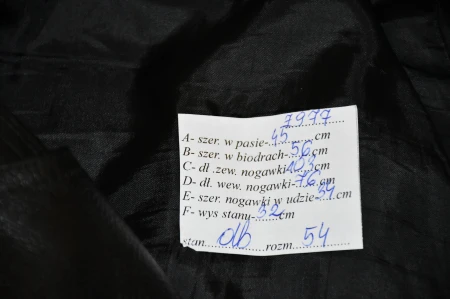 7977
A- szer. w pasie-45cm
B- szer. w biodrach-56cm
C- dł .zew. nogawki-103cm
D- dł. wew. nogawki-76cm
E- szer. nogawki w udzie-34cm
F- wys stanu-32cm
stan db rozm. 54